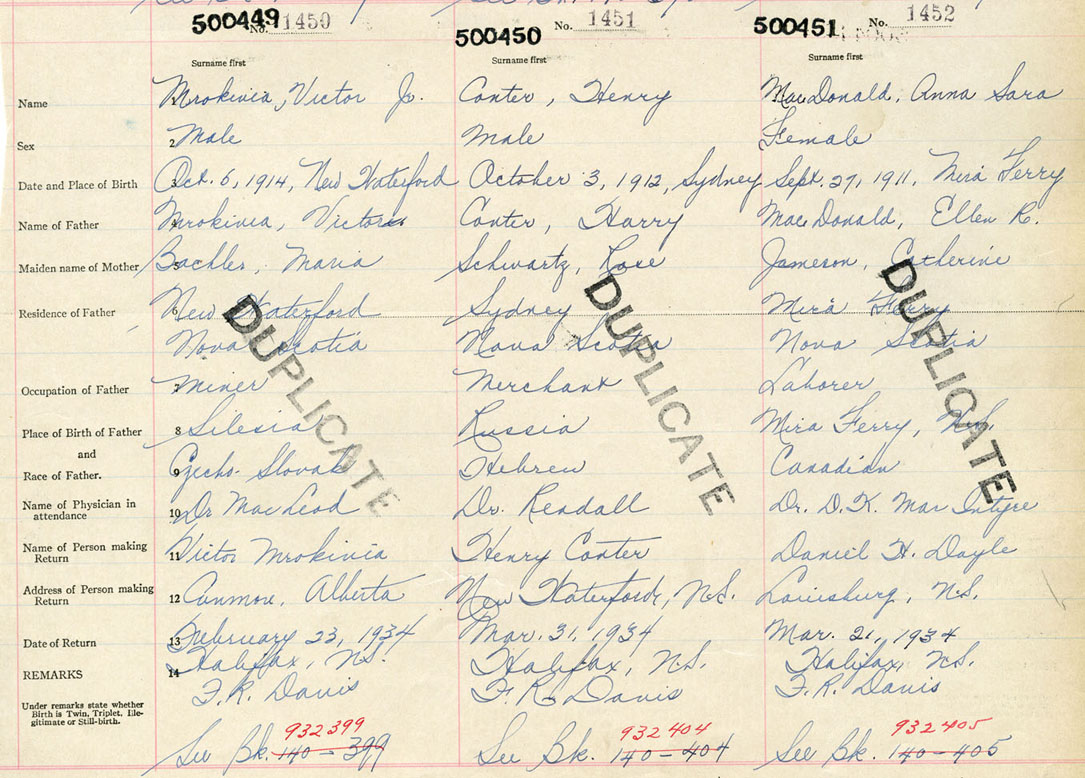 500449 No. 1450 500450 No. 1451 500451 No. 1452
Surname first Surname first Surname first
Name 1 Mrokivia, Victor Jr. Conter, Henry MacDonald, Anna Sara
Sex 2 Male Male Female
Date and Place of Birth 3 Oct. 6, 1914, New Waterford October 3, 1912, Sydney Sept. 27, 1911, Mira Ferry
Name of Father 4 Mrokivia, Victor Conter, Harry MacDonald, Ellen R.
Maiden name of Mother 5 Bachler, Maria Schwartz, Rose Jameson, Catherine
Residence of Father 6 New Waterford Sydney Mira Ferry
Nova Scotia Nova Scotia Nova Scotia
DUPLICATE DUPLICATE DUPLICATE
Occupation of Father 7 Miner Merchant Laborer
Place of Birth of Father 8 Silesia Russia Mira Ferry, N.S.
and
Race of Father. 9 Czecho-Slovak Hebrew Canadian
Name of Physician in attendance 10 Dr MacLeod Dr. Kendall Dr. D.K. MacIntyre
Name of Person making Return 11 Victor Mrokivia Henry Conter Daniel H. Doyle
Address of Person making Return 12 Canmore, Alberta New Waterford, N.S. Louisburg, N.S.
Date of Return 13 February 23, 1934 Mar. 31, 1934 Mar. 21, 1934
REMARKS 14 Halifax, N.S. Halifax, N.S. Halifax, N.S.
F.R. Davis F.R. Davis F.R. Davis
Under remarks state whether
Birth is Twin, Triplet, Ille-
gitimate or Still-birth.
932 399 932 404 932 405
See Bk. 140-399 See Bk. 140-404 See Bk. 140-405